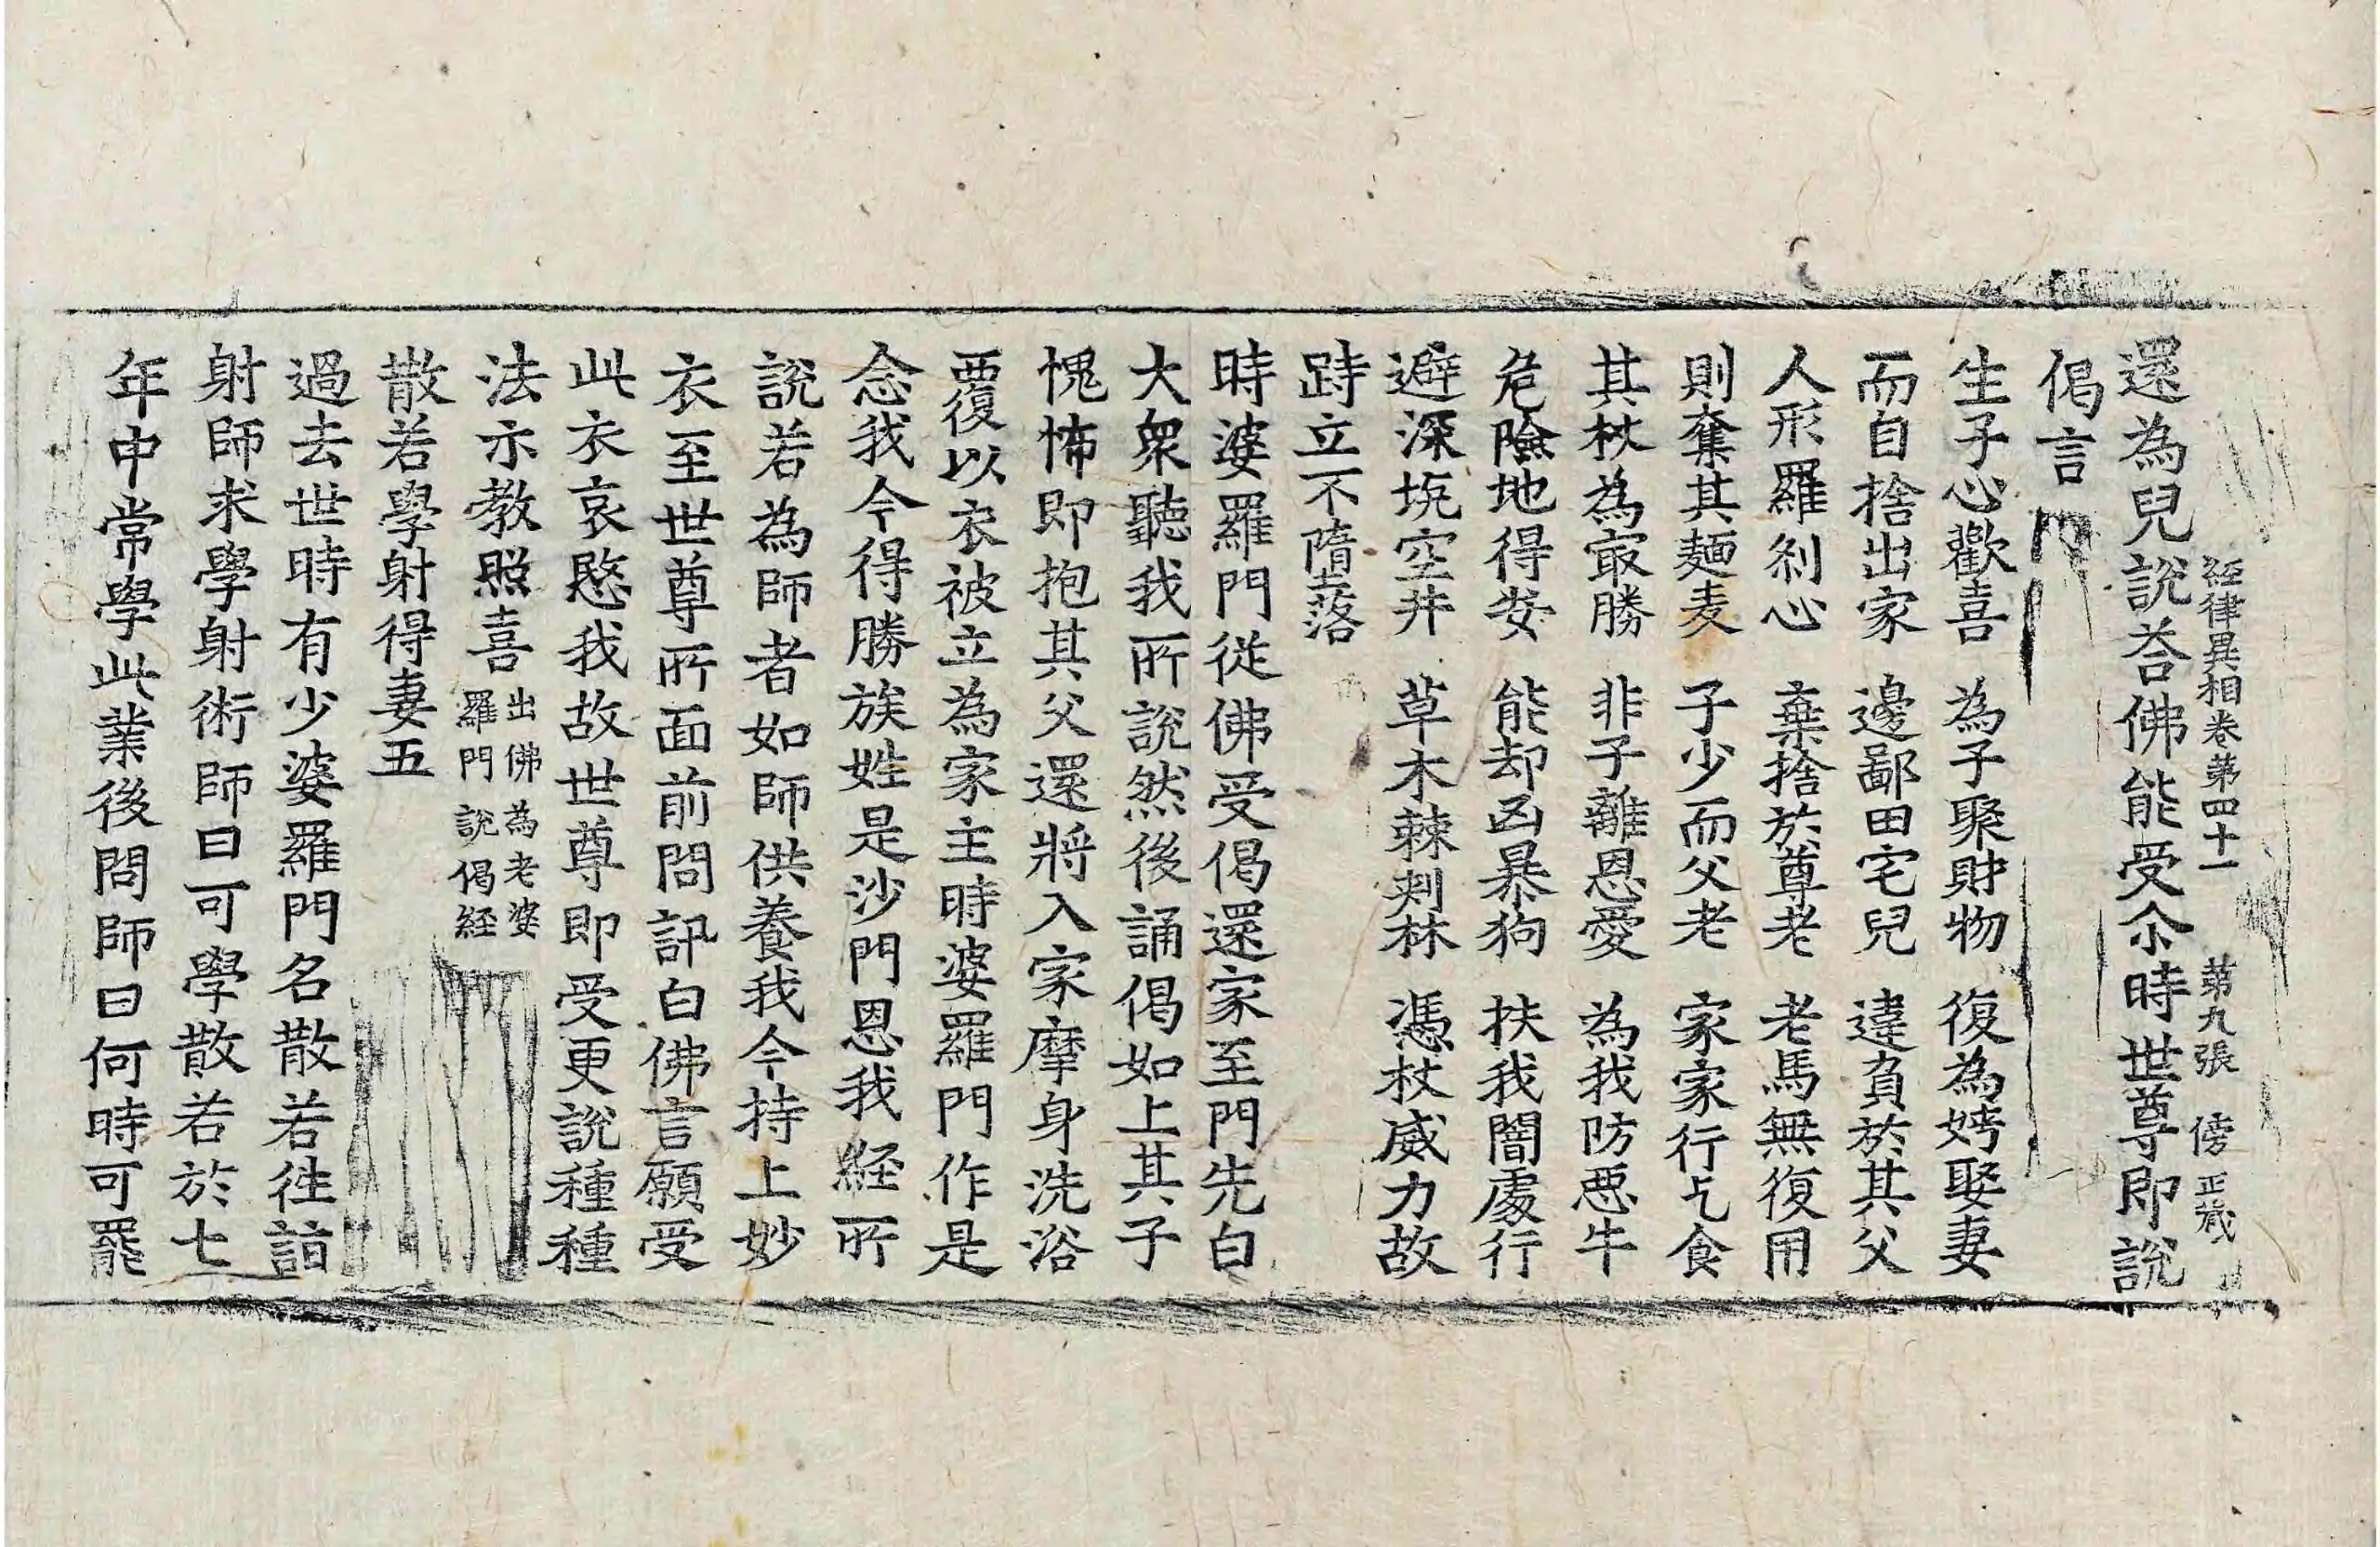 經律異相卷第四十一 第九張 傍 正歲
還為兒說荅佛能受尒時世尊即說
偈言
生子心歡喜 為子聚財物 復為娉娶妻
而自捨出家 邊鄙田宅兒 違負於其父
人形羅剎心 棄捨於尊老 老馬無復用
則奪其麺麦 子少而父老 家家行乞食
其杖為㝡勝 非子離恩愛 為我防惡牛
危險地得安 能却凶暴狗 扶我闇處行
避深坑空井 草木棘刺林 憑杖威力故
跱立不墮落
時婆羅門從佛受偈還家至門先白
大衆聽我所說然後誦偈如上其子
愧怖即抱其父還將入家摩身洗浴
覆以衣被立為家主時婆羅門作是
念我今得勝族姓是沙門恩我經所
說若為師者如師供養我今持上妙
衣至世尊所面前問訊白佛言願受
此衣哀愍我故世尊即受更說種種
法示教照喜出佛為老婆羅門說偈経
散若學射得妻五
過去世時有少婆羅門名散若往詣
射師求學射術師曰可學散若於七
年中常學此業後問師曰何時可罷